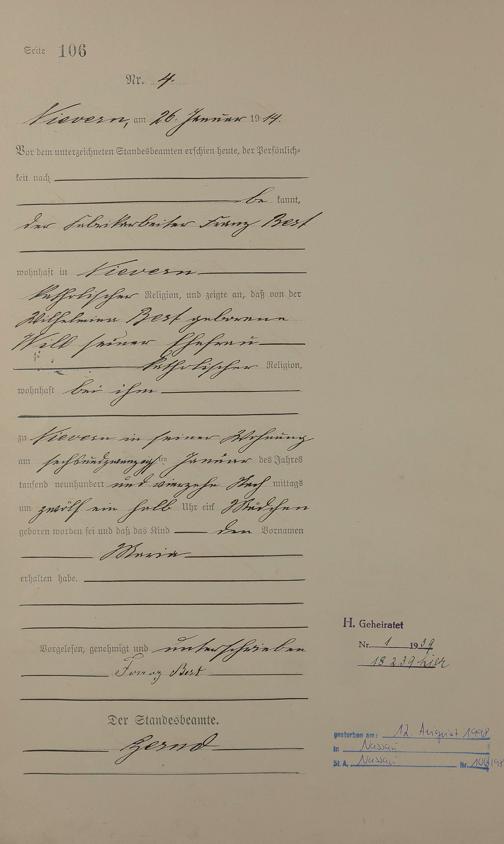 Seite 106
Nr. 4.
Nievern, am 26. Januar 1914.
Vor dem unterzeichneten Standesbeamten erschien heute, der Persönlich-
keit nach
be kannt,
der Fabrikarbeiter Franz Best
wohnhaft in Nievern
katholischer Religion, und zeigte an, daß von der
Wilhelmina Best geborene
seiner Ehefrau
katholischer Religion,
wohnhaft bei ihm
zu Nievern in seiner Wohnung
am sechsundzwanzigsten Januar des Jahres
tausend neunhundert und vierzehn Nach mittags
um zwölf ein halb Uhr ein Mädchen
geboren worden sei und daß das Kind den Vornamen
Maria
erhalten habe.
Vorgelesen, genehmigt und unterschrieben
Franz Best
Der Standesbeamte.
H. Geheiratet
Nr. 1 1939
hier
gestorben am: 12. August 1998
in Nassau
St. A. Nassau Nr.